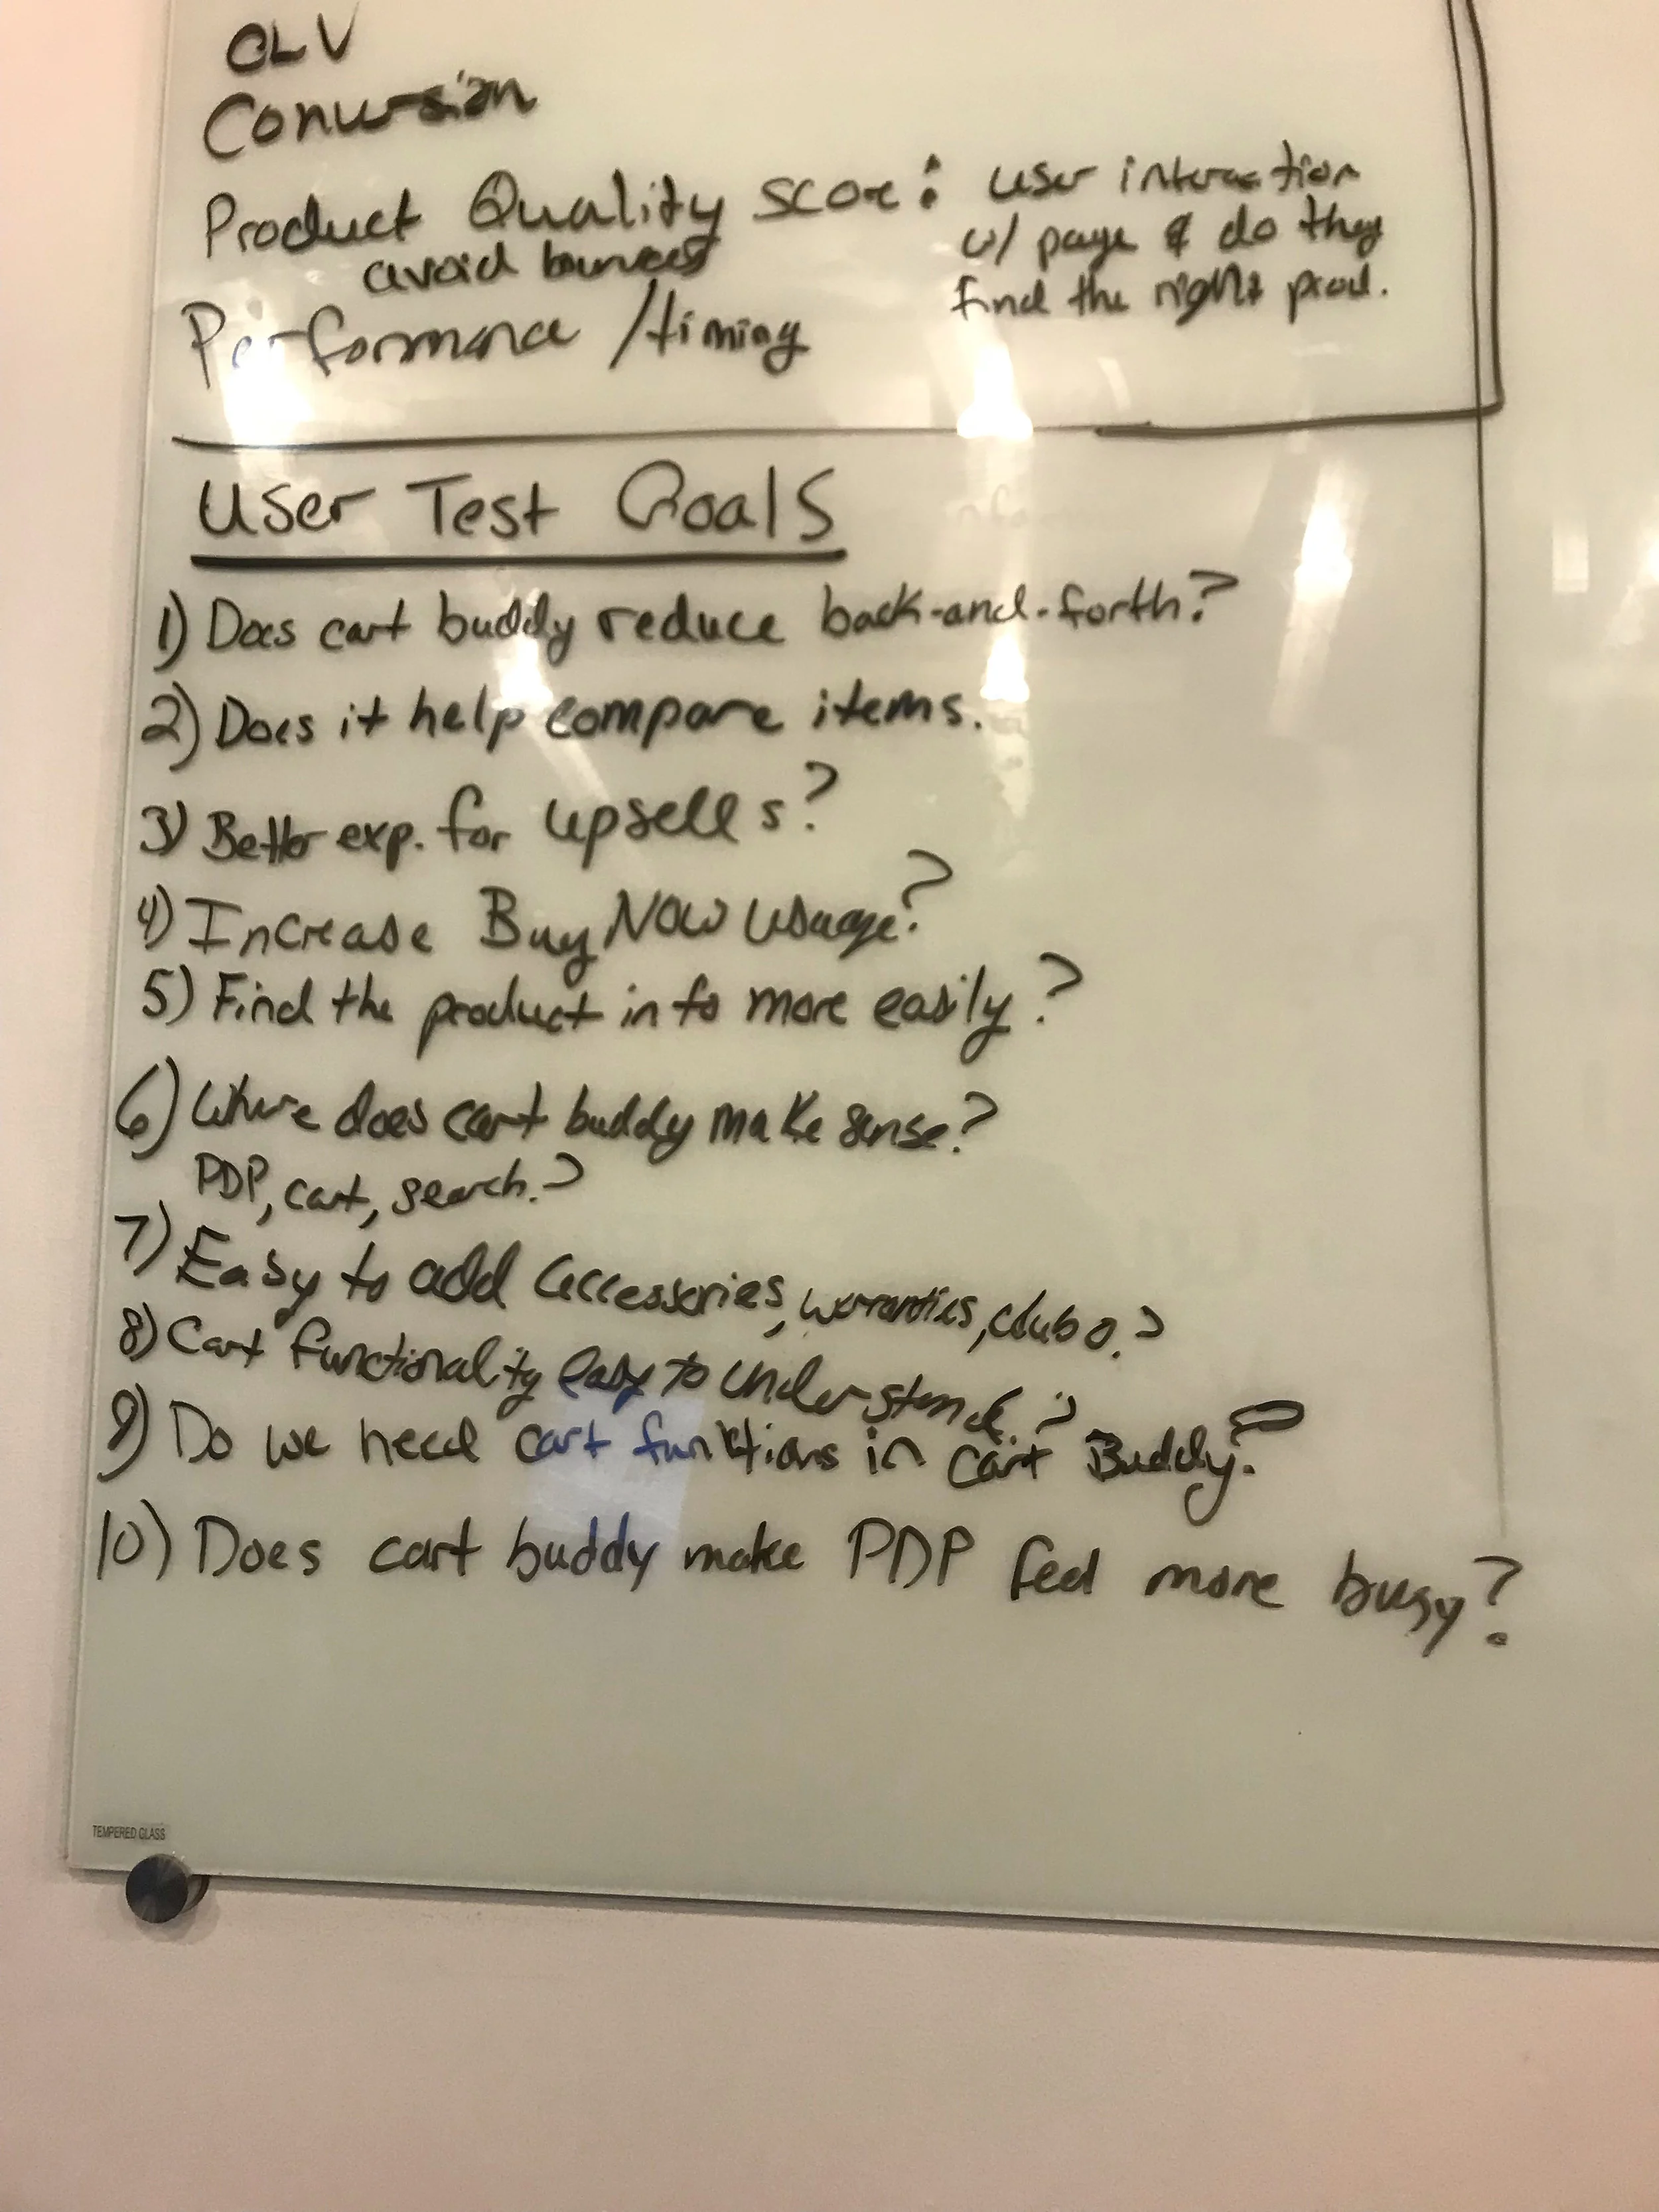 OLV
Conversion
Product Quality score: user interaction
w/ page & do they
find the right prod.
avoid bounces
Performance /timing
User Test Goals
1) Does cart buddy reduce back-and-forth?
2) Does it help compare items.
3) Better exp. for upsells?
4) Increase Buy Now usage?
5) Find the product info more easily?
6) Where does cart buddy make sense?
PDP, cart, search.?
7) Easy to add accessories, warranties, club o.?
8) Cart functionality easy to understand.?
9) Do we need cart functions in cart Buddy?
10) Does cart buddy make PDP feel more busy?
TEMPERED GLASS